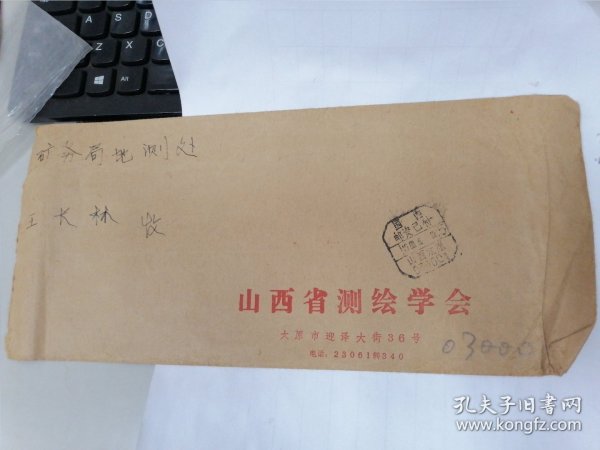 A
S
D
Z
X
C
Alt
矿务局地测处
王长林 收
国内
邮资已付
山西太原
山西省测绘学会
太原市迎泽大街36号
电话：23061转340
030000
孔夫子旧书网
www.kongfz.com